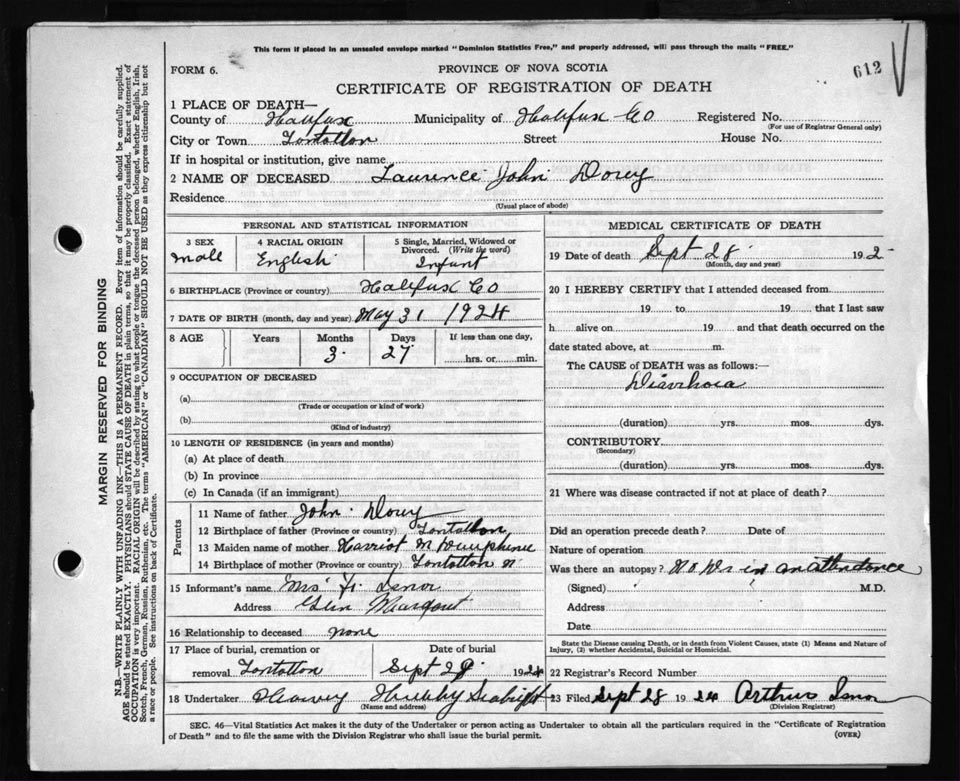 This form if placed in an unsealed envelope marked "Dominion Statistics Free," and properly addressed, will pass through the mails "FREE."
FORM 6.
PROVINCE OF NOVA SCOTIA
612
CERTIFICATE OF REGISTRATION OF DEATH
1 PLACE OF DEATH—
County of Halifax Municipality of Halifax Co Registered No.
(For use of Registrar General only)
City or Town Tontallon Street House No.
If in hospital or institution, give name
2 NAME OF DECEASED Laurence John Dorey
Residence
(Usual place of abode)
PERSONAL AND STATISTICAL INFORMATION
3 SEX male
4 RACIAL ORIGIN English
5 Single, Married, Widowed or Divorced. (Write the word) Infant
6 BIRTHPLACE (Province or country) Halifax Co
7 DATE OF BIRTH (month, day and year) May 31 1924
8 AGE Years Months Days If less than one day,
3 27 hrs. or min.
9 OCCUPATION OF DECEASED
(a)
(Trade or occupation or kind of work)
(b)
(Kind of industry)
10 LENGTH OF RESIDENCE (in years and months)
(a) At place of death
(b) In province
(c) In Canada (if an immigrant)
Parents
11 Name of father John Dorey
12 Birthplace of father (Province or country) Tontallon
13 Maiden name of mother Harriot M
14 Birthplace of mother (Province or country) Tontallon
15 Informant's name Mrs Isnor
Address Glen Margaret
16 Relationship to deceased none
17 Place of burial, cremation or removal Tontallon
Date of burial Sept 28 1924
18 Undertaker Harvey Hubley Seabright
(Name and address)
MEDICAL CERTIFICATE OF DEATH
19 Date of death Sept 28 192
(Month, day and year)
20 I HEREBY CERTIFY that I attended deceased from
19 to 19 that I last saw
h alive on 19 and that death occurred on the
date stated above, at m.
The CAUSE of DEATH was as follows:—
Diarrhoea
(duration) yrs. mos. dys.
CONTRIBUTORY
(Secondary)
(duration) yrs. mos. dys.
21 Where was disease contracted if not at place of death?
Did an operation precede death? Date of
Nature of operation
Was there an autopsy? No Drs in an attendence
(Signed) M.D.
Address
Date
State the Disease causing Death, or in death from Violent Causes, state (1) Means and Nature of Injury, (2) whether Accidental, Suicidal or Homicidal.
22 Registrar's Record Number
23 Filed Sept 28 1924 Arthur Isnor
(Division Registrar)
SEC. 46—Vital Statistics Act makes it the duty of the Undertaker or person acting as Undertaker to obtain all the particulars required in the "Certificate of Registration
of Death" and to file the same with the Division Registrar who shall issue the burial permit.
(OVER)
MARGIN RESERVED FOR BINDING
N.B.—WRITE PLAINLY WITH UNFADING INK—THIS IS A PERMANENT RECORD. Every item of information should be carefully supplied.
AGE should be stated EXACTLY. PHYSICIANS should STATE CAUSE OF DEATH in plain terms, so that it may be properly classified. Exact statement of
OCCUPATION is very important. RACIAL ORIGIN will be described by stating to what people or tongue the deceased person belonged, whether English, Irish,
Scotch, French, German, Russian, Ruthenian, etc. The terms "AMERICAN" or "CANADIAN" SHOULD NOT BE USED as they express citizenship but not
a race or people. See instructions on back of Certificate.